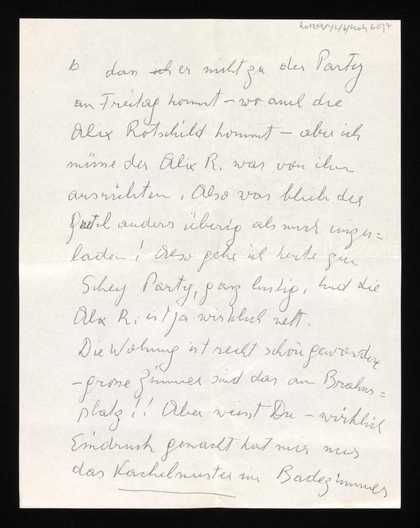 b dass er nicht zu der Party
am Freitag kommt – wo auch die
Alix Rotschild kommt – aber ich
müsse der Alix R. was von ihm
ausrichten. Also was blieb der
anders übrig als mich einzu=
laden! Also gehe ich heute zur
Schey Party, ganz lustig, und die
Alix R. ist ja wirklich nett.
Die Wohnung ist recht schön geworden
– grosse Zimmer sind das am Brahms=
platz!! Aber weisst Du – wirklich
Eindruck gemacht hat mir nur
das Kachelmuster im Badezimmer